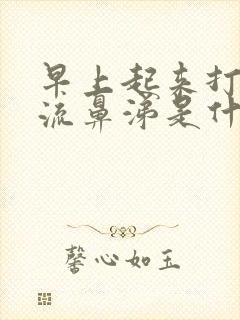 早上起来打
流鼻涕是什
馨心如玉